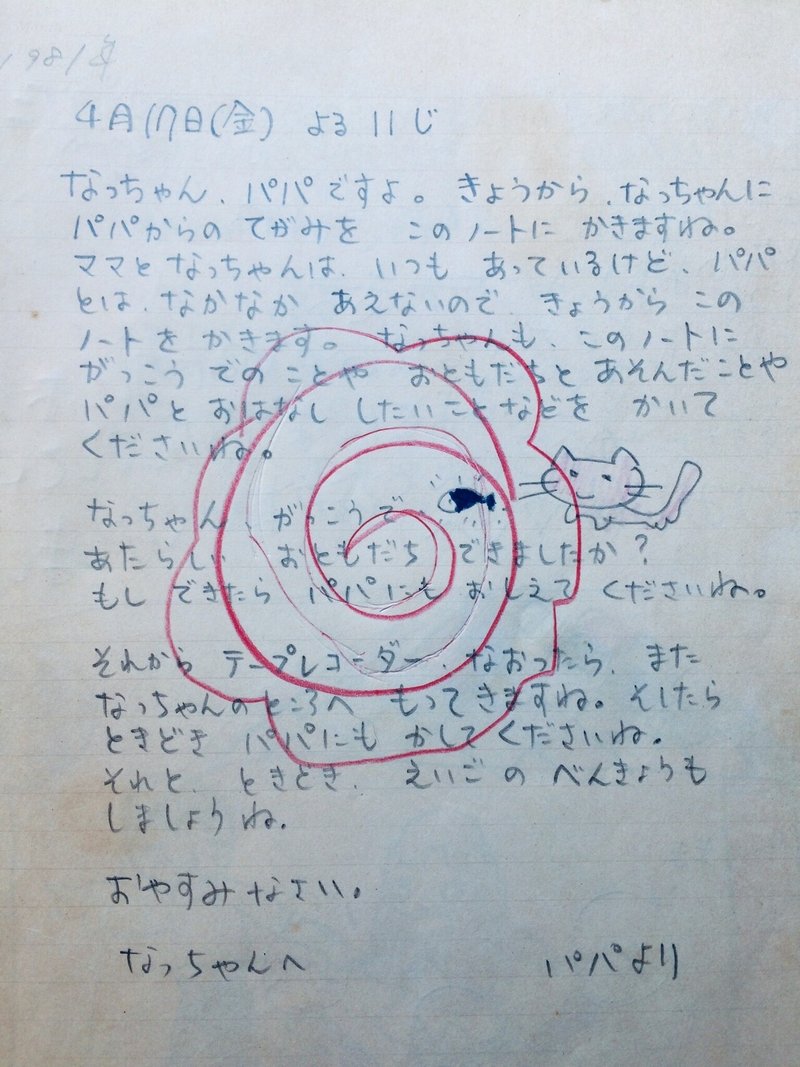 1981年
4月17日(金) よる 11じ
なっちゃん、パパですよ。きょうから、なっちゃんに
パパからの てがみを このノートに かきますね。
ママと なっちゃんは、いつも あっているけど、パパ
とは、なかなか あえないので、きょうから この
ノートを かきます。なっちゃんも、このノートに
がっこう でのことや おともだちと あそんだことや
パパと おはなし したいことなどを かいて
くださいね。
なっちゃん、がっこうで、
あたらしい おともだち できましたか?
もし できたら パパにも おしえて くださいね。
それから テープレコーダー、なおったら、また
なっちゃんのところへ もってきますね。そしたら
ときどき パパにも かしてくださいね。
それと、ときどき、えいごの べんきょうも
しましょうね。
おやすみなさい。
なっちゃんへ パパより